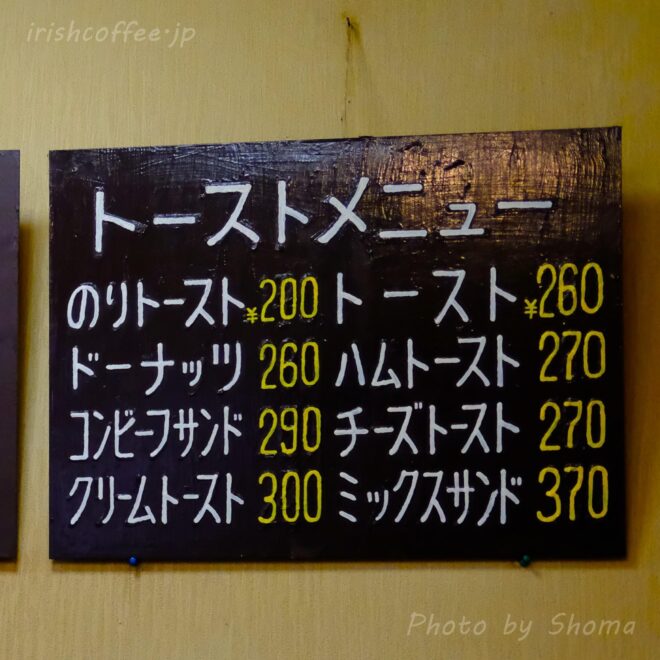 irishcoffee.jp
トーストメニュー
のりトースト ¥200 トースト ¥260
ドーナッツ 260 ハムトースト 270
コンビーフサンド 290 チーズトースト 270
クリームトースト 300 ミックスサンド 370
Photo by Shoma